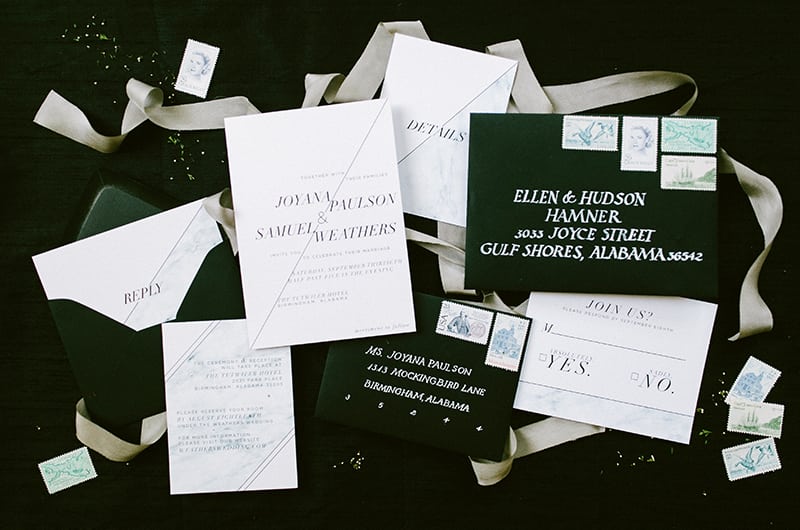 DETAILS
TOGETHER WITH THEIR FAMILIES
JOYANA PAULSON
&
SAMUEL WEATHERS
INVITE YOU TO CELEBRATE THEIR MARRIAGE
SATURDAY, SEPTEMBER THIRTIETH
HALF PAST FIVE IN THE EVENING
THE TUTWILER HOTEL
BIRMINGHAM, ALABAMA
to follow
ELLEN & HUDSON
HAMNER
3033 JOYCE STREET
GULF SHORES, ALABAMA 36542
REPLY
THE CEREMONY & RECEPTION
WILL TAKE PLACE AT
THE TUTWILER HOTEL
2021 PARK PLACE
BIRMINGHAM, ALABAMA
PLEASE RESERVE YOUR ROOM
BY AUGUST EIGHTEENTH
UNDER THE WEATHERS WEDDING
FOR MORE INFORMATION
PLEASE VISIT OUR WEBSITE
WEATHERSWEDDING.COM
MS. JOYANA PAULSON
1313 MOCKINGBIRD LANE
BIRMINGHAM, ALABAMA
3 5 2 4 4
JOIN US?
PLEASE RESPOND BY SEPTEMBER EIGHTH
M
ABSOLUTELY
YES.
SADLY
NO.